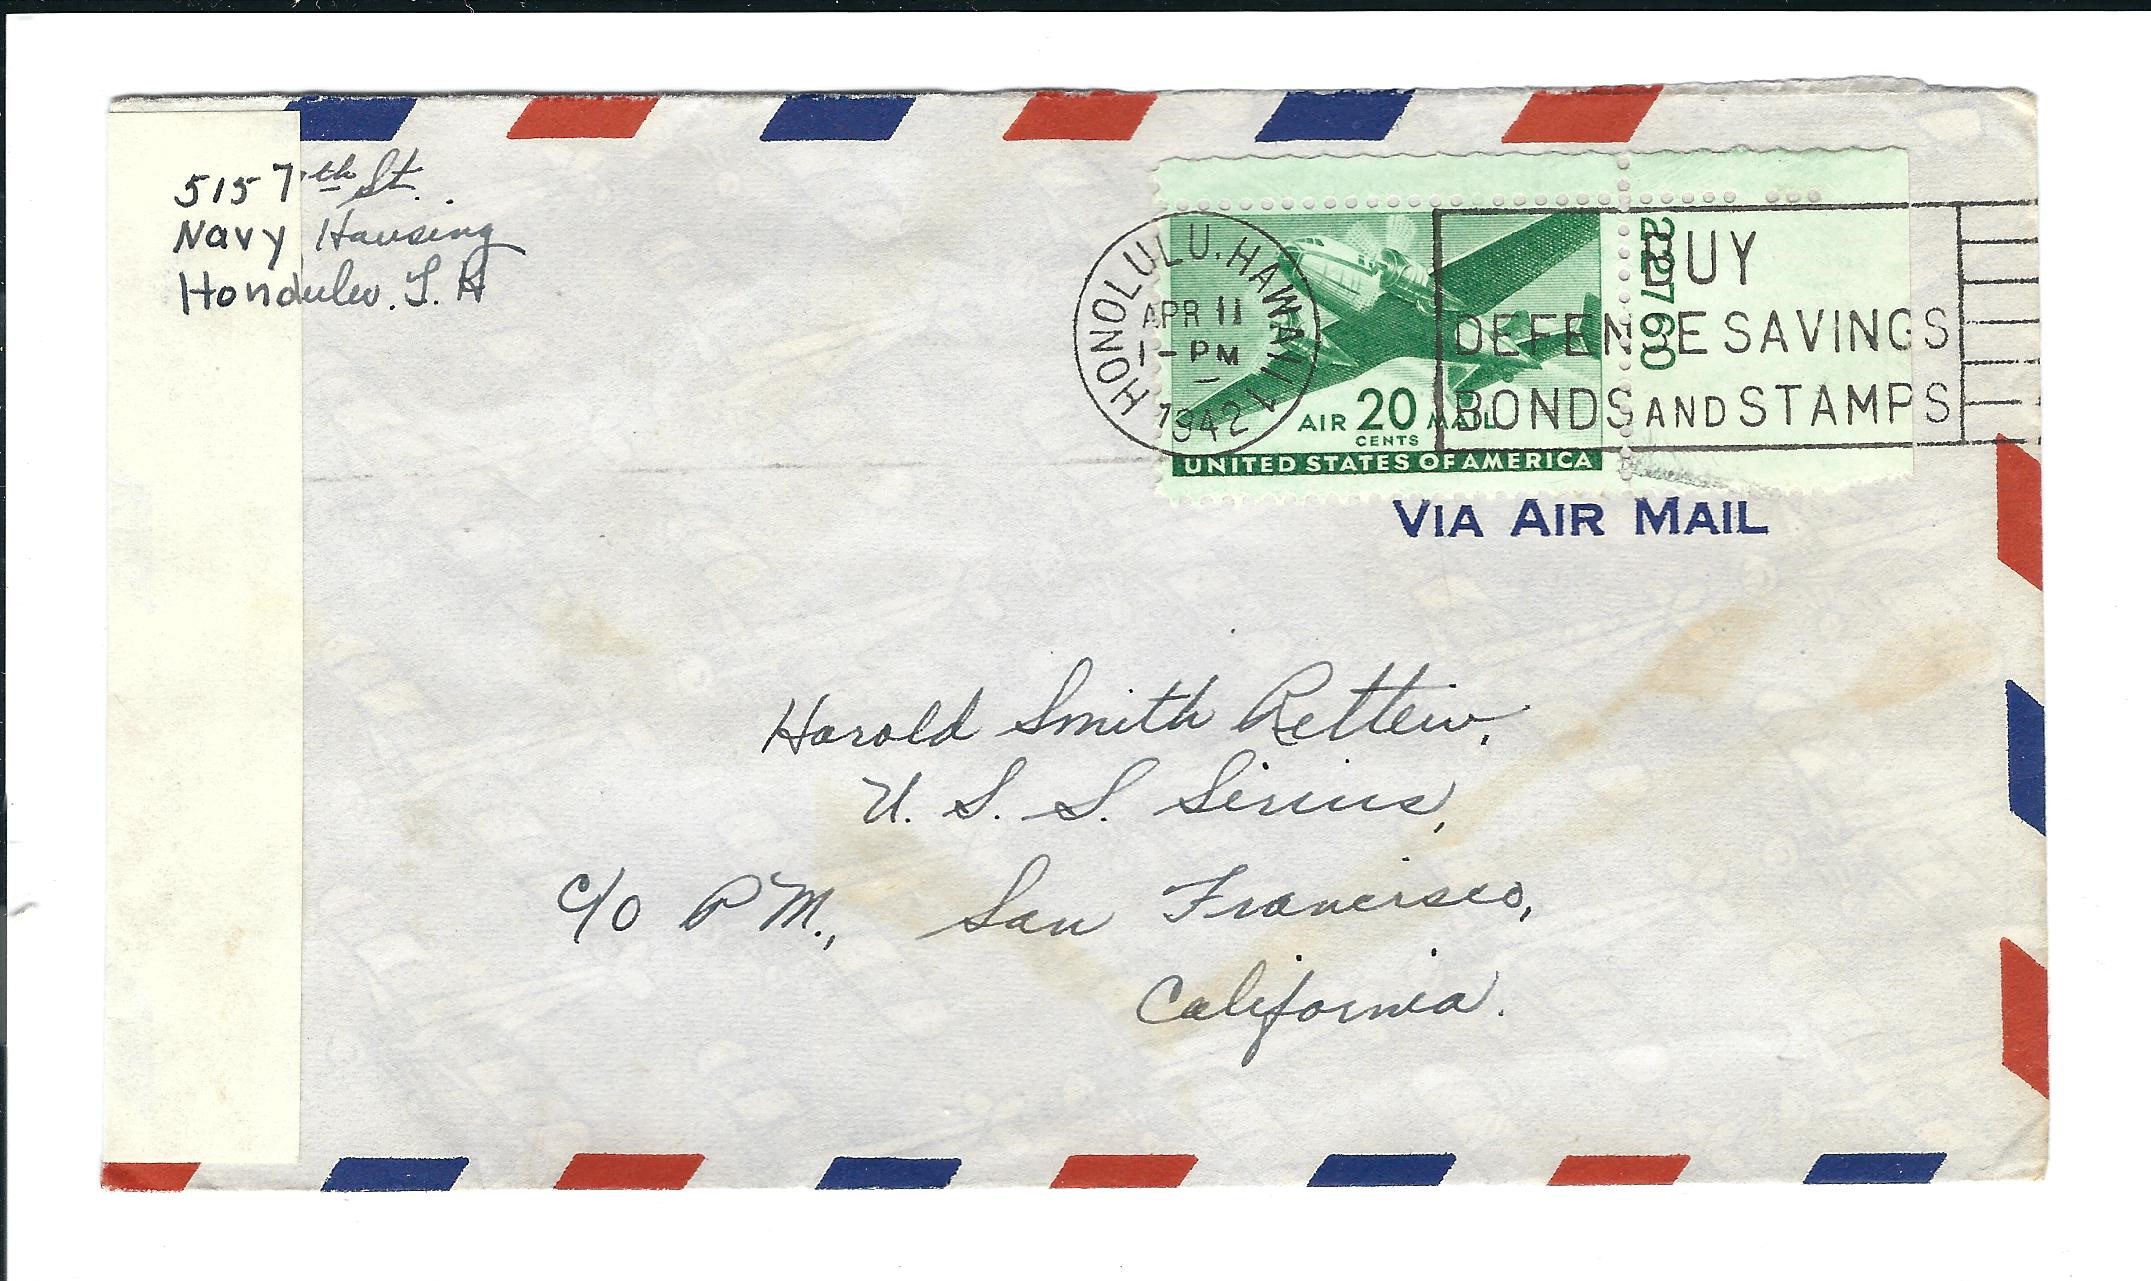 515 7th St.
Navy Housing
Honolulu. T. H
HONOLULU, HAWAII 1
APR 11
1 - PM
1942
BUY
DEFENSE SAVINGS
BONDS AND STAMPS
22760
AIR 20 MAIL
CENTS
UNITED STATES OF AMERICA
VIA AIR MAIL
Harold Smith Rettew,
U. S. S. Sirius,
c/o P M., San Francisco,
California.